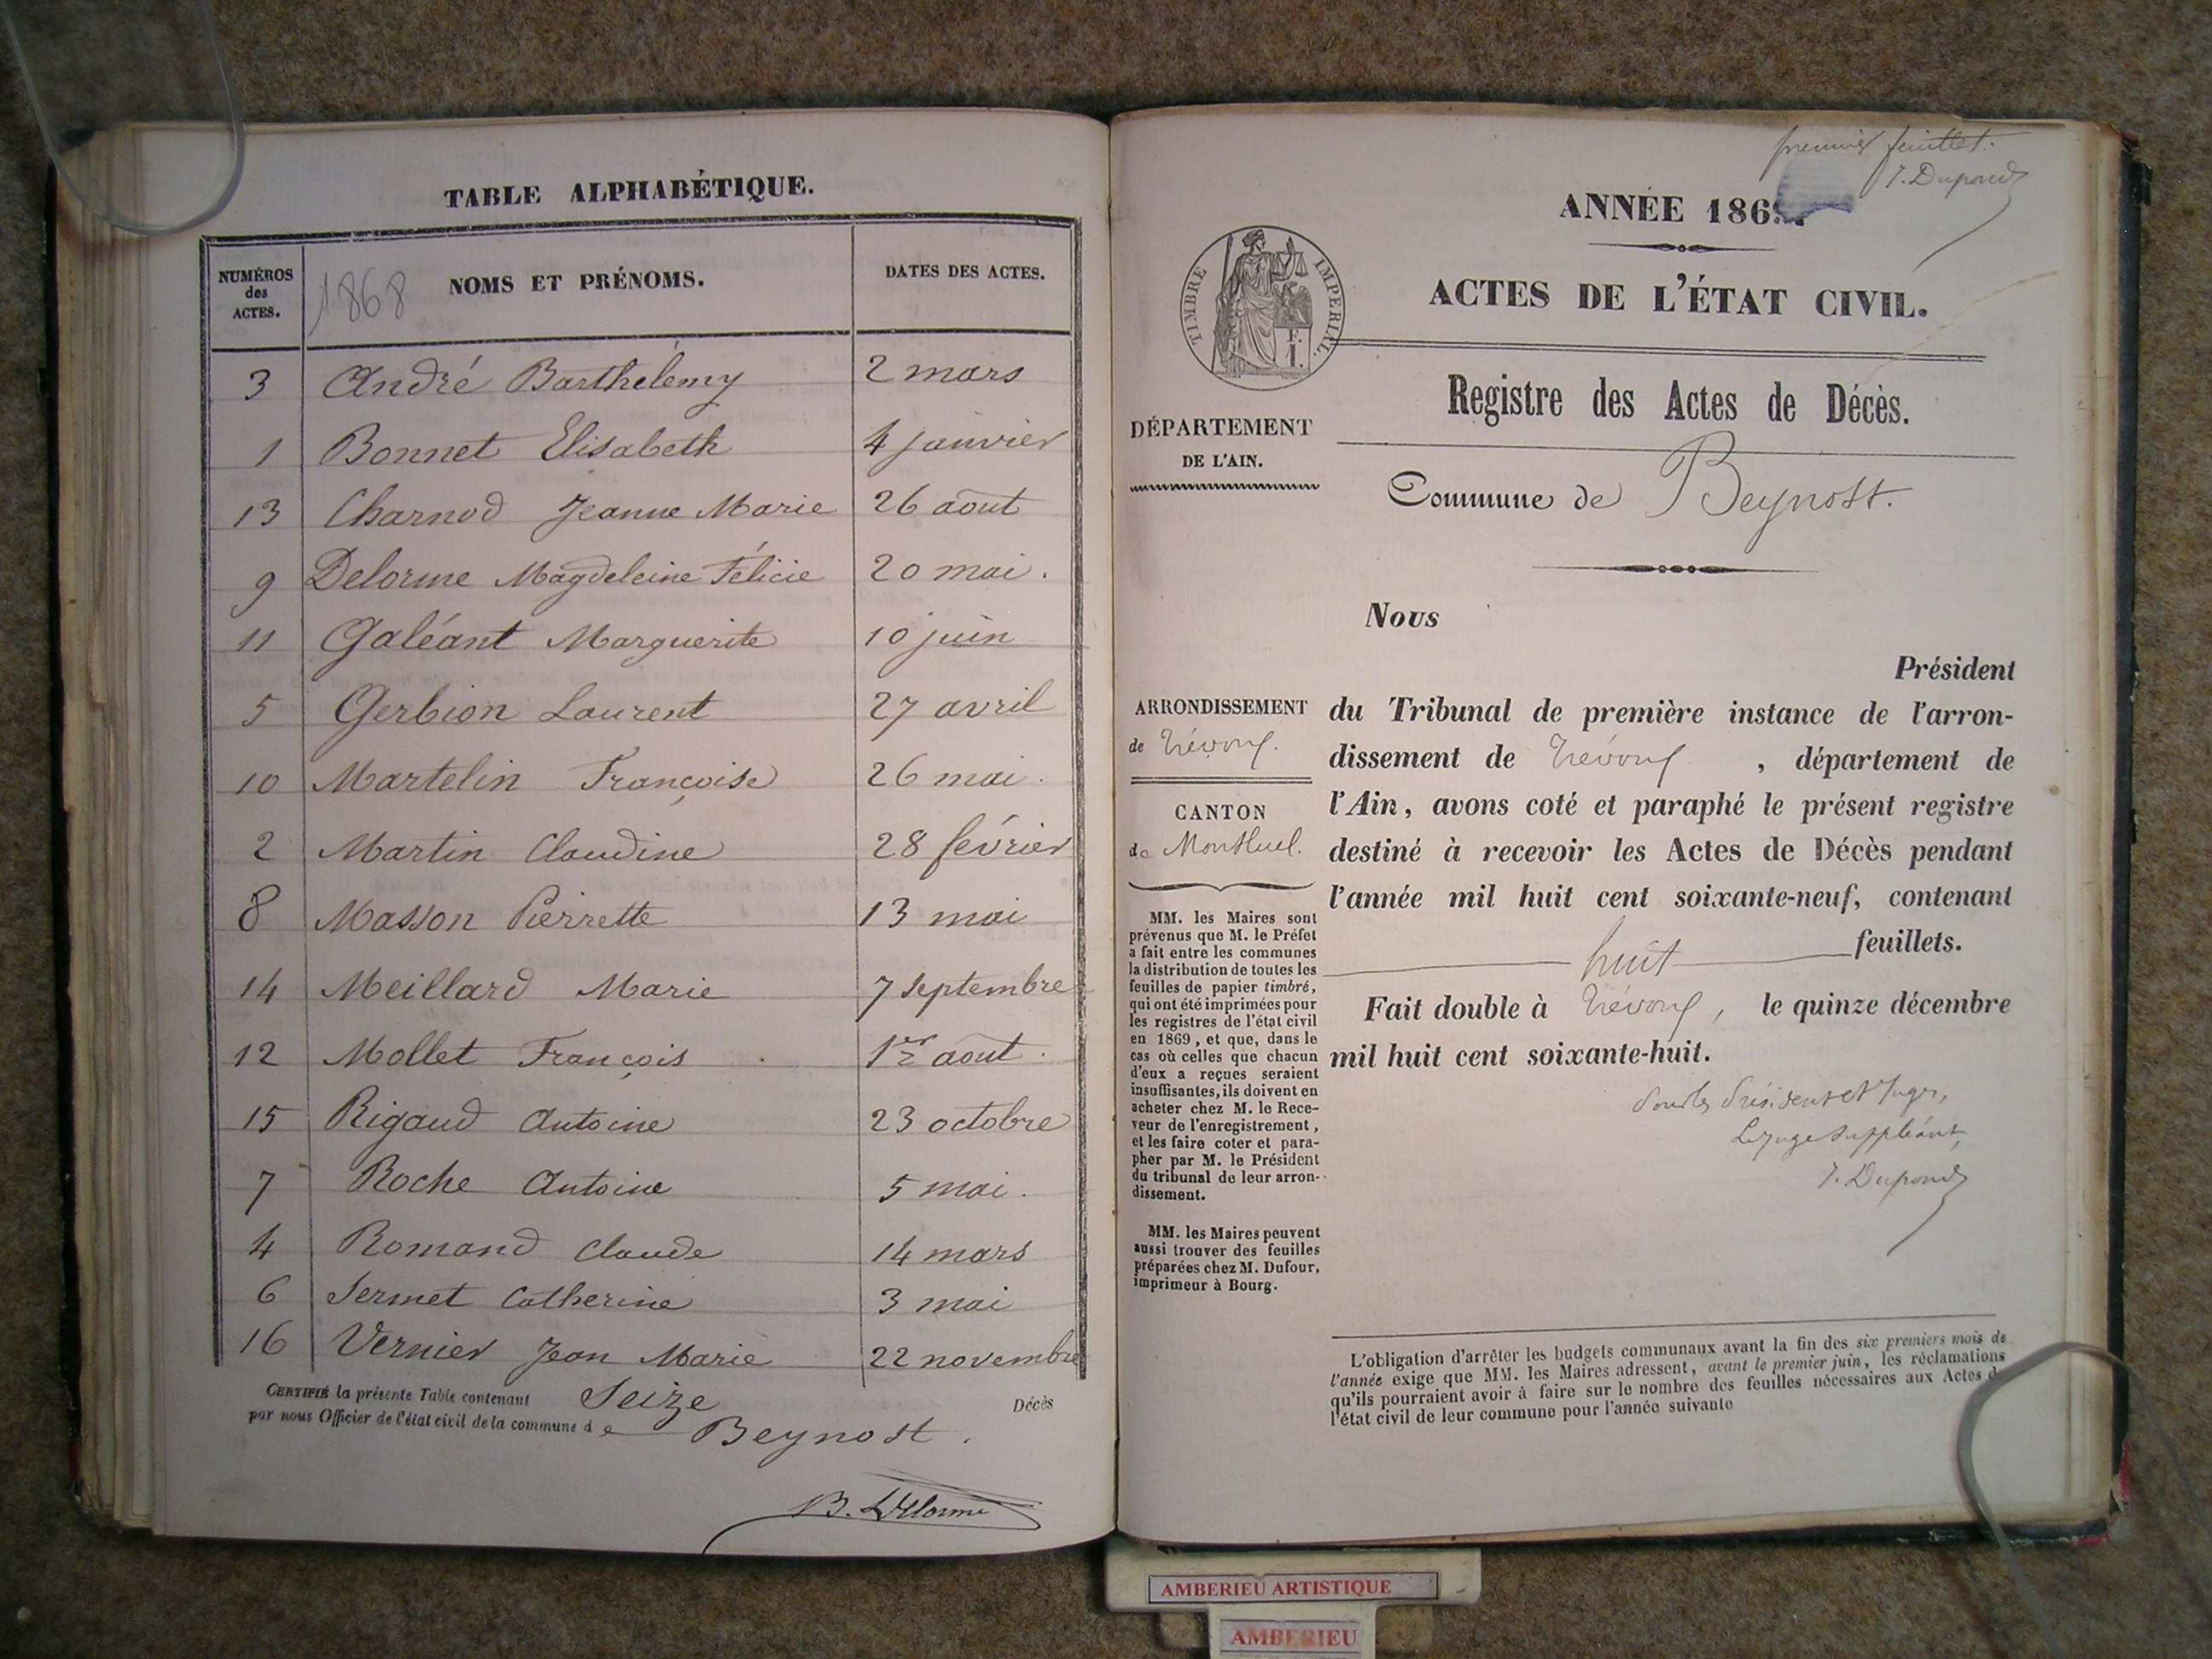 TABLE ALPHABÉTIQUE.
NUMÉROS des ACTES.
1868 NOMS ET PRÉNOMS.
DATES DES ACTES.
3 André Barthélemy 2 mars
1 Bonnet Elisabeth 4 janvier
13 Charnod Jeanne Marie 26 aout
9 Delorme Magdeleine Félicie 20 mai.
11 Galéant Marguerite 10 juin
5 Gerbion Laurent 27 avril
10 Martelin Françoise 26 mai.
2 Martin Claudine 28 février
8 Masson Pierrette 13 mai
14 Meillard Marie 7 septembre
12 Mollet François 1er aout.
15 Rigaud Antoine 23 octobre
7 Roche Antoine 5 mai.
4 Romand Claude 14 mars
6 Sermet Catherine 3 mai
16 Vernier Jean Marie 22 novembre
CERTIFIÉ la présente Table contenant Seize Décès
par nous Officier de l'état civil de la commune de Beynost.
B. Delorme
premier feuillet.
J. Dupond
ANNÉE 1869.
TIMBRE IMPERIAL.
1 F.
ACTES DE L'ÉTAT CIVIL.
Registre des Actes de Décès.
DÉPARTEMENT
DE L'AIN.
Commune de Beynost.
ARRONDISSEMENT
de Trévoux.
CANTON
de Montluel.
MM. les Maires sont
prévenus que M. le Préfet
a fait entre les communes
la distribution de toutes les
feuilles de papier timbré,
qui ont été imprimées pour
les registres de l'état civil
en 1869, et que, dans le
cas où celles que chacun
d'eux a reçues seraient
insuffisantes, ils doivent en
acheter chez M. le Rece-
veur de l'enregistrement,
et les faire coter et para-
pher par M. le Président
du tribunal de leur arron-
dissement.
MM. les Maires peuvent
aussi trouver des feuilles
préparées chez M. Dufour,
imprimeur à Bourg.
Nous
Président
du Tribunal de première instance de l'arron-
dissement de Trévoux, département de
l'Ain, avons coté et paraphé le présent registre
destiné à recevoir les Actes de Décès pendant
l'année mil huit cent soixante-neuf, contenant
huit feuillets.
Fait double à Trévoux, le quinze décembre
mil huit cent soixante-huit.
Pour les Président et Juges,
Le juge suppléant,
J. Dupond
L'obligation d'arrêter les budgets communaux avant la fin des six premiers mois de
l'année exige que MM. les Maires adressent, avant le premier juin, les réclamations
qu'ils pourraient avoir à faire sur le nombre des feuilles nécessaires aux Actes d
l'état civil de leur commune pour l'année suivante
AMBERIEU ARTISTIQUE
AMBERIEU